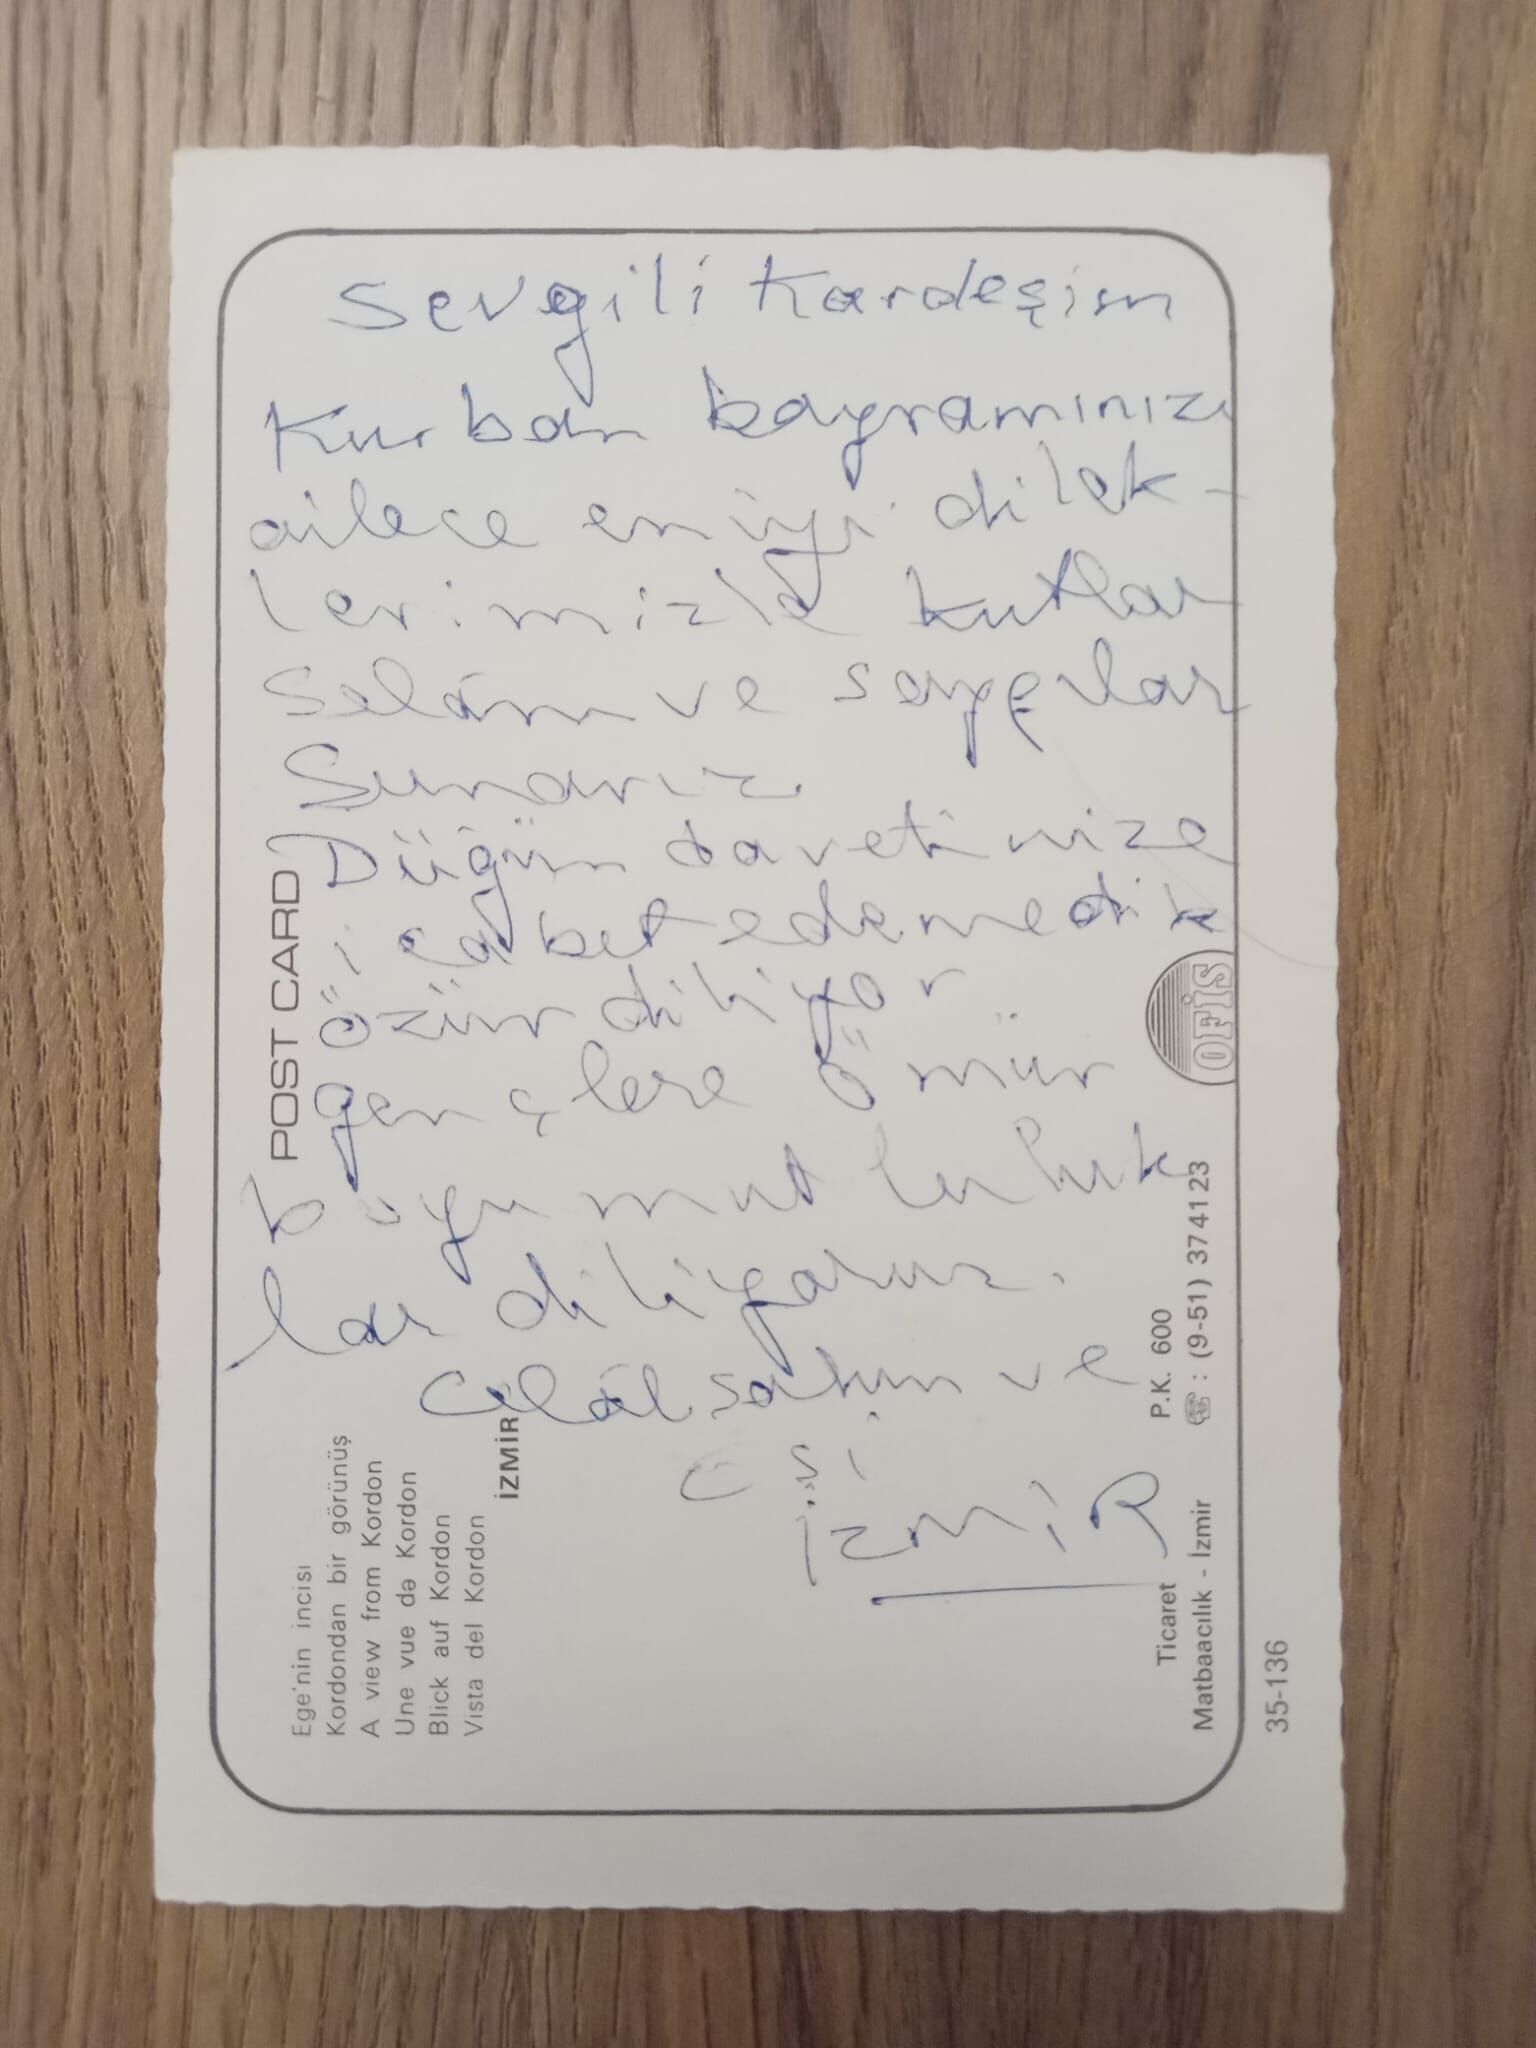 Sevgili Kardeşim
Kurban bayramınızı
ailece en iyi dilek-
lerimizle kutlar
Selâm ve saygılar
Sunarız.
Düğün davetinize
icabet edemedik
özür diliyor
gençlere ömür
boyu mutluluk
lar diliyoruz.
Celâl ve
eşi
İZMİR
POST CARD
Ege'nin incisi
Kordondan bir görünüş
A view from Kordon
Une vue də Kordon
Blick auf Kordon
Vista del Kordon
İZMİR
OFİS
Ticaret P.K. 600
Matbaacılık - İzmir ☏ : (9-51) 374123
35-136